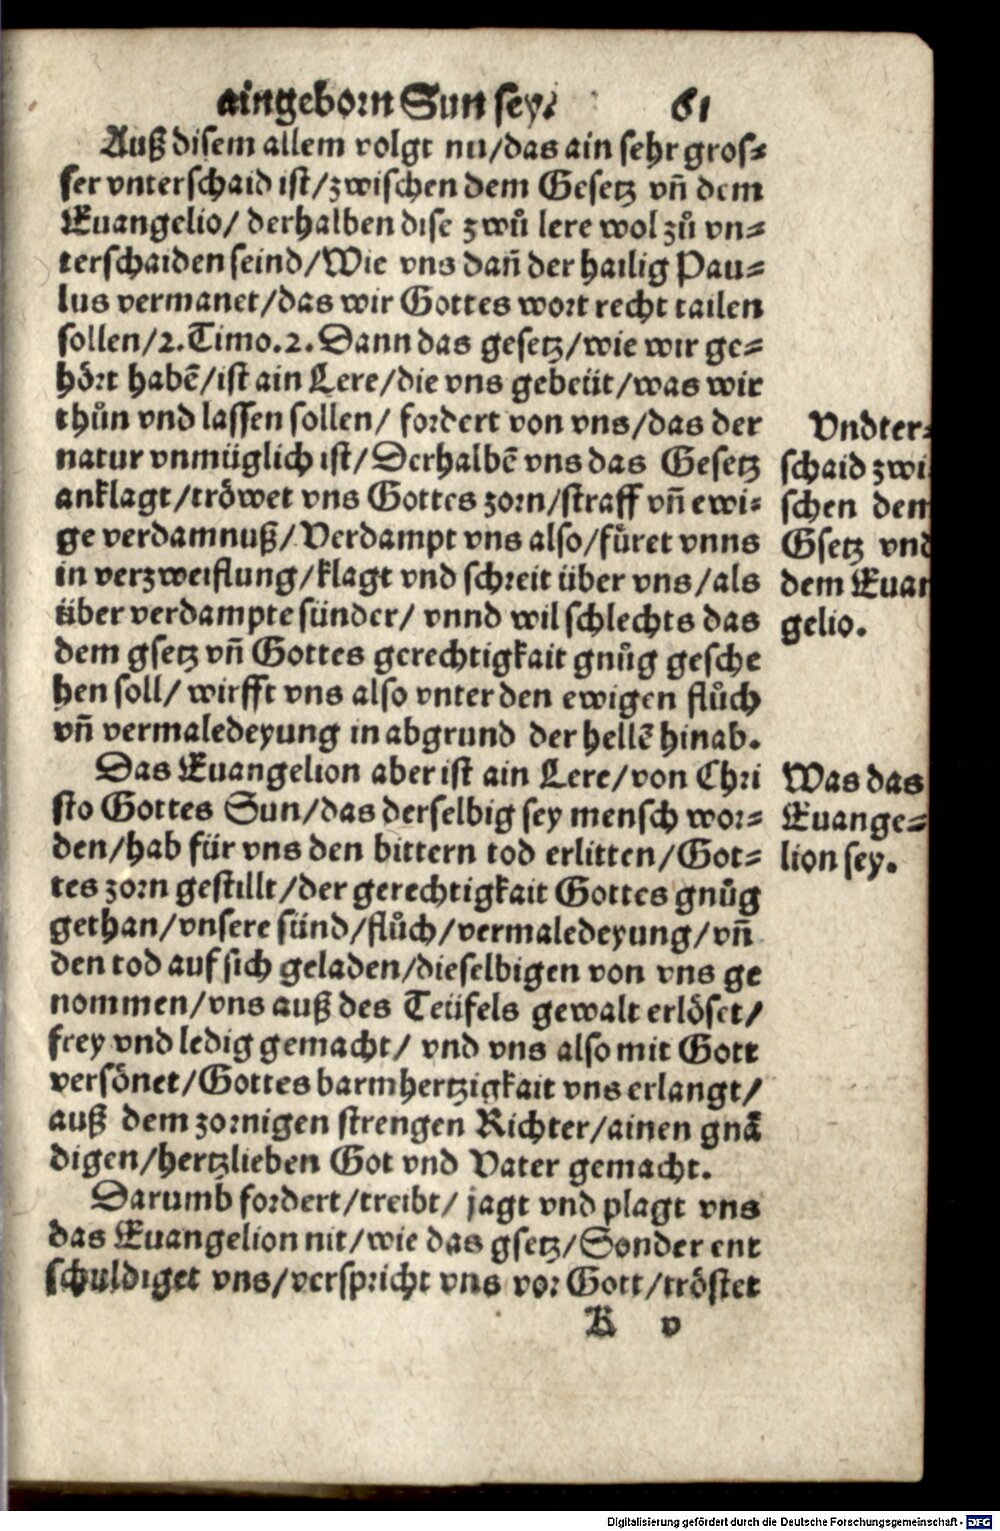 aingeborn Sun sey. 61
Auß disem allem volgt nu/das ain sehr gros⸗
ser vnterschaid ist/zwischen dem Gesetz vñ dem
Euangelio/ derhalben dise zwů lere wol zů vn⸗
terschaiden seind/Wie vns dañ der hailig Pau⸗
lus vermanet/das wir Gottes wort recht tailen
sollen/2.Timo.2. Dann das gesetz/wie wir ge⸗
hört habē/ist ain Lere/die vns gebeüt/was wir
thůn vnd lassen sollen/ fordert von vns/das der
natur vnmüglich ist/Derhalbē vns das Gesetz
anklagt/tröwet vns Gottes zorn/straff vñ ewi⸗
ge verdamnuß/Verdampt vns also/füret vnns
in verzweiflung/klagt vnd schreit über vns/als
über verdampte sünder/ vnnd wil schlechts das
dem gsetz vñ Gottes gerechtigkait gnůg gesche
hen soll/ wirfft vns also vnter den ewigen flůch
vñ vermaledeyung in abgrund der hellē hinab.
Vndter⸗
schaid zwi
schen dem
Gsetz vnd
dem Euan
gelio.
Das Euangelion aber ist ain Lere/von Chri
sto Gottes Sun/das derselbig sey mensch wor⸗
den/hab für vns den bittern tod erlitten/Got⸗
tes zorn gestillt/der gerechtigkait Gottes gnůg
gethan/vnsere sünd/flůch/vermaledeyung/vñ
den tod auf sich geladen/dieselbigen von vns ge
nommen/vns auß des Teüfels gewalt erlöset/
frey vnd ledig gemacht/ vnd vns also mit Gott
versönet/Gottes barmhertzigkait vns erlangt/
auß dem zornigen strengen Richter/ainen gnä
digen/hertzlieben Got vnd Vater gemacht.
Was das
Euange⸗
lion sey.
Darumb fordert/treibt/ jagt vnd plagt vns
das Euangelion nit/wie das gsetz/Sonder ent
schuldiget vns/verspricht vns vor Gott/tröstet
K v
Digitalisierung gefördert durch die Deutsche Forschungsgemeinschaft - DFG